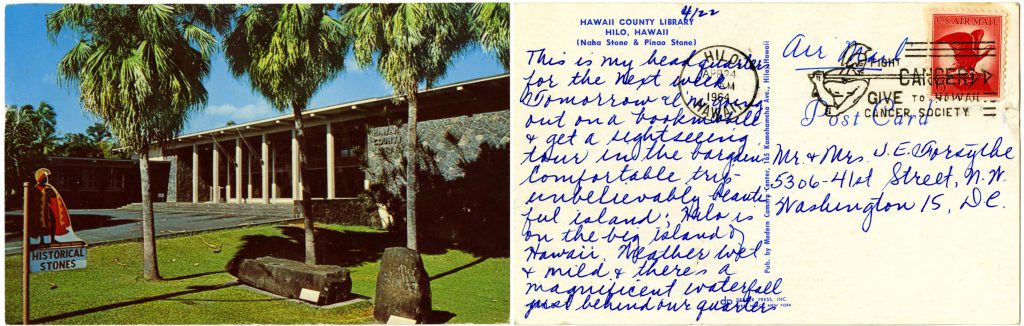 HISTORICAL
STONES
HAWAII
COUNTY
4/22
HAWAII COUNTY LIBRARY
HILO, HAWAII
(Naha Stone & Pinao Stone)
This is my headquarters
for the next week.
Tomorrow I'm going
out on a bookmobile
& get a sightseeing
tour in the bargain.
Comfortable trip -
unbelievably beauti-
ful island; Hilo is
on the big island of
Hawaii. Weather wet
& mild & there's a
magnificent waterfall
just behind our quarters
Pub. by Modern Camera Center, 165 Kamehameha Ave., Hilo, Hawaii
PRESS, INC.
NEW YORK
HILO
APR 24
AM
1964
HAWAII
FIGHT
CANCER
GIVE TO HAWAII
CANCER SOCIETY
U.S. AIR MAIL
Air Mail
Post Card
Mr. & Mrs. J. E. Forsythe
5306-41st Street, N.W.
Washington 15, D.C.